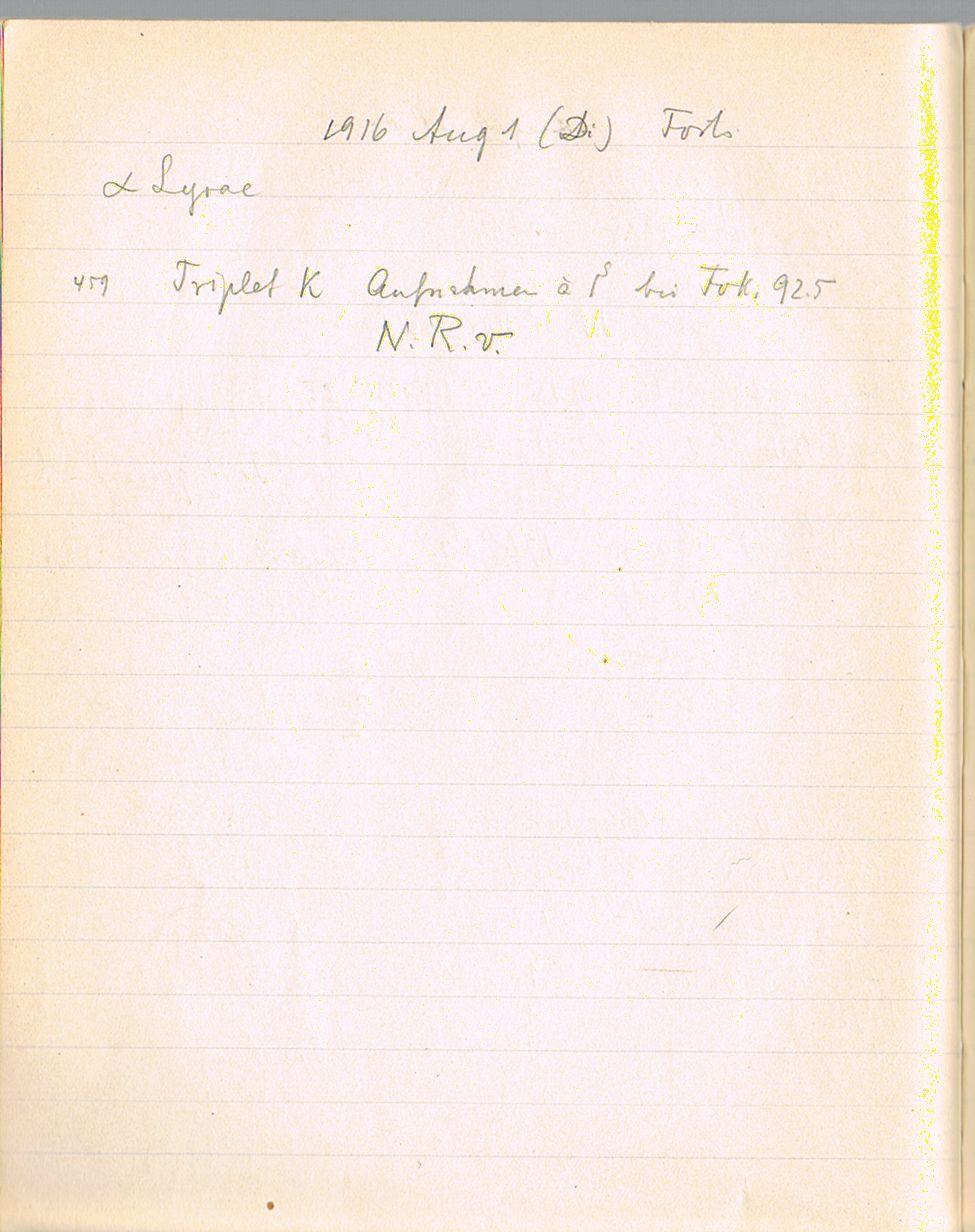 1916 Aug 1 (Di) Forts.
α Lyrae
459 Triplet K Aufnahmen à 1ˢ bei Fok. 92.5
N. R. v.